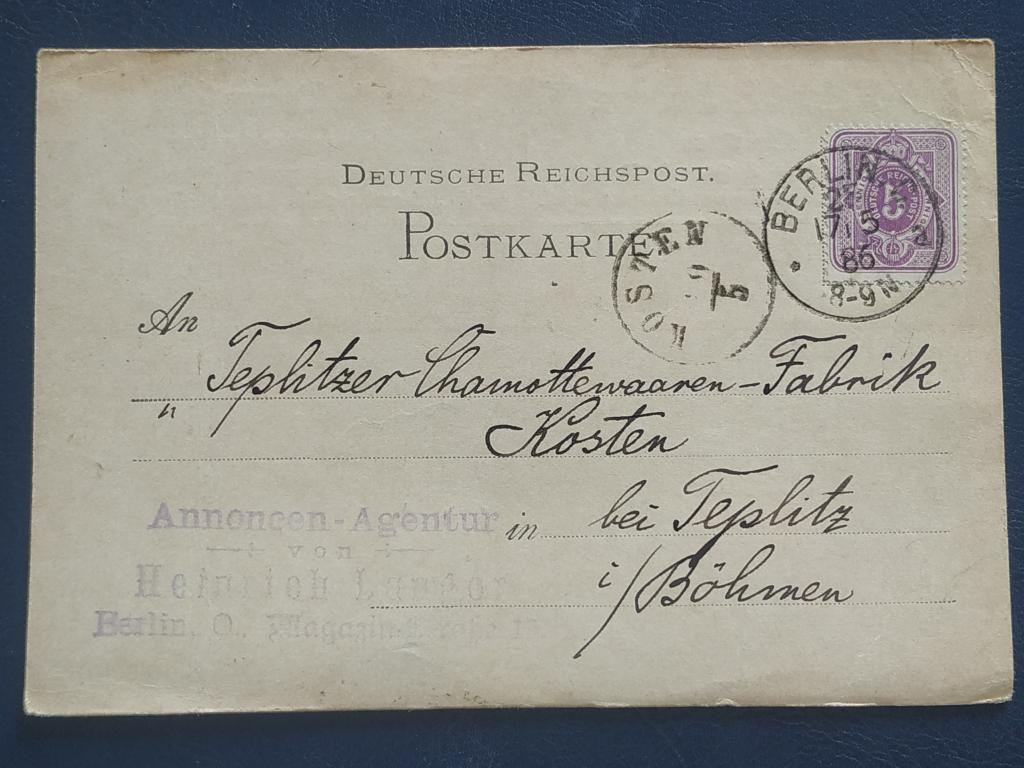 DEUTSCHE REICHSPOST.
POSTKARTE
BERLIN
17 5
86
8-9N
KOSTEN
5
5
An
" Teplitzer Chamottewaaren-Fabrik
Kosten
in bei Teplitz
i/Böhmen
Annoncen-Agentur
von
Heinrich
Berlin, O., Magazin